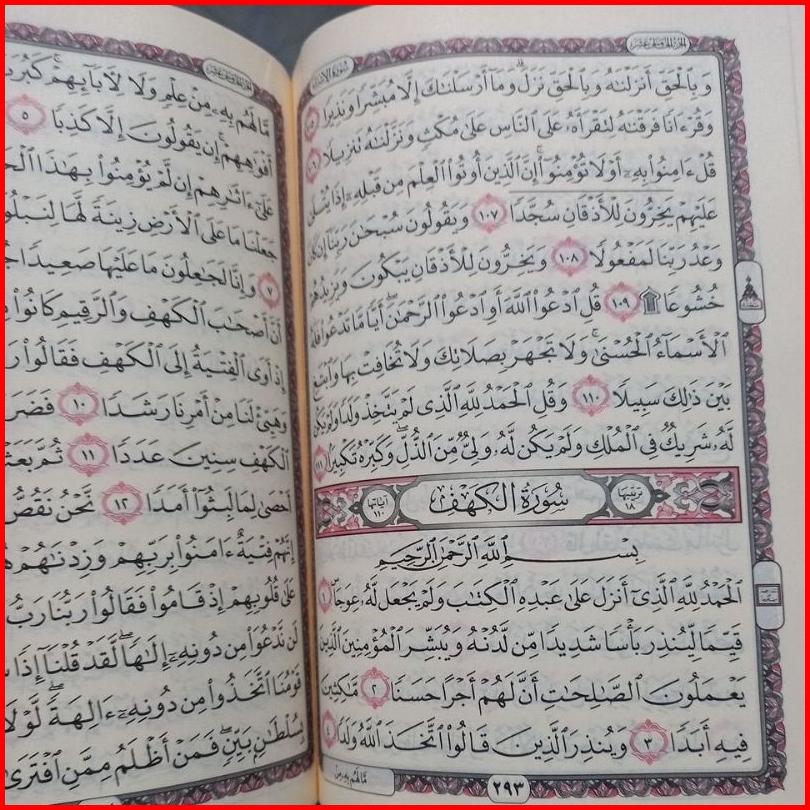 الجزء الخامس عشر
سورة الإسراء
وَبِالْحَقِّ أَنزَلْنَاهُ وَبِالْحَقِّ نَزَلَ وَمَا أَرْسَلْنَاكَ إِلَّا مُبَشِّرًا وَنَذِيرًا ١٠٥
وَقُرْءَانًا فَرَقْنَاهُ لِتَقْرَأَهُ عَلَى النَّاسِ عَلَى مُكْثٍ وَنَزَّلْنَاهُ تَنزِيلًا ١٠٦
قُلْ ءَامِنُوا بِهِ أَوْ لَا تُؤْمِنُوا إِنَّ الَّذِينَ أُوتُوا الْعِلْمَ مِن قَبْلِهِ إِذَا يُتْلَى
عَلَيْهِمْ يَخِرُّونَ لِلْأَذْقَانِ سُجَّدًا ١٠٧ وَيَقُولُونَ سُبْحَانَ رَبِّنَا إِن كَانَ
وَعْدُ رَبِّنَا لَمَفْعُولًا ١٠٨ وَيَخِرُّونَ لِلْأَذْقَانِ يَبْكُونَ وَيَزِيدُهُمْ
خُشُوعًا ۩ ١٠٩ قُلِ ادْعُوا اللَّهَ أَوِ ادْعُوا الرَّحْمَٰنَ أَيًّا مَّا تَدْعُوا فَلَهُ
الْأَسْمَاءُ الْحُسْنَى وَلَا تَجْهَرْ بِصَلَاتِكَ وَلَا تُخَافِتْ بِهَا وَابْتَغِ
بَيْنَ ذَٰلِكَ سَبِيلًا ١١٠ وَقُلِ الْحَمْدُ لِلَّهِ الَّذِي لَمْ يَتَّخِذْ وَلَدًا وَلَمْ يَكُن
لَّهُ شَرِيكٌ فِي الْمُلْكِ وَلَمْ يَكُن لَّهُ وَلِيٌّ مِّنَ الذُّلِّ وَكَبِّرْهُ تَكْبِيرًا ١١١
ترتيبها ١٨ سُورَةُ الْكَهْفِ آياتها ١١٠
بِسْمِ اللَّهِ الرَّحْمَٰنِ الرَّحِيمِ
الْحَمْدُ لِلَّهِ الَّذِي أَنزَلَ عَلَى عَبْدِهِ الْكِتَابَ وَلَمْ يَجْعَل لَّهُ عِوَجًا ١
قَيِّمًا لِّيُنذِرَ بَأْسًا شَدِيدًا مِّن لَّدُنْهُ وَيُبَشِّرَ الْمُؤْمِنِينَ الَّذِينَ
يَعْمَلُونَ الصَّالِحَاتِ أَنَّ لَهُمْ أَجْرًا حَسَنًا ٢ مَّاكِثِينَ
فِيهِ أَبَدًا ٣ وَيُنذِرَ الَّذِينَ قَالُوا اتَّخَذَ اللَّهُ وَلَدًا ٤
مَّا لَهُم بِهِ مِنْ
٢٩٣
مَّا لَهُم بِهِ مِنْ عِلْمٍ وَلَا لِآبَائِهِمْ كَبُرَتْ
أَفْوَاهِهِمْ إِن يَقُولُونَ إِلَّا كَذِبًا ٥
عَلَى ءَاثَارِهِمْ إِن لَّمْ يُؤْمِنُوا بِهَٰذَا
جَعَلْنَا مَا عَلَى الْأَرْضِ زِينَةً لَّهَا لِنَبْلُوَ
٧ وَإِنَّا لَجَاعِلُونَ مَا عَلَيْهَا صَعِيدًا
أَنَّ أَصْحَابَ الْكَهْفِ وَالرَّقِيمِ كَانُوا
إِذْ أَوَى الْفِتْيَةُ إِلَى الْكَهْفِ فَقَالُوا
وَهَيِّئْ لَنَا مِنْ أَمْرِنَا رَشَدًا ١٠ فَضَرَ
الْكَهْفِ سِنِينَ عَدَدًا ١١ ثُمَّ بَعَثْ
أَحْصَى لِمَا لَبِثُوا أَمَدًا ١٢ نَّحْنُ نَقُصُّ
إِنَّهُمْ فِتْيَةٌ ءَامَنُوا بِرَبِّهِمْ وَزِدْنَاهُمْ
عَلَى قُلُوبِهِمْ إِذْ قَامُوا فَقَالُوا رَبُّنَا رَبُّ
لَن نَّدْعُوَا مِن دُونِهِ إِلَٰهًا لَّقَدْ قُلْنَا إِذًا
قَوْمُنَا اتَّخَذُوا مِن دُونِهِ ءَالِهَةً لَّوْلَا
بِسُلْطَانٍ بَيِّنٍ فَمَنْ أَظْلَمُ مِمَّنِ افْتَرَى